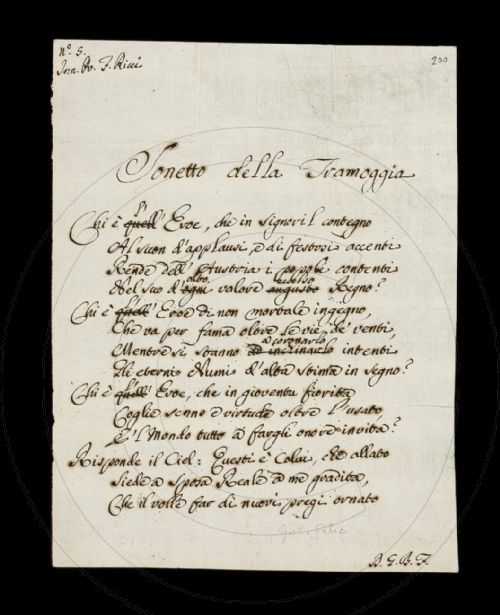 N.º 5.
Inn. Po. F. Ricci
200
Sonetto della Tramoggia
Chi è quell' L' Eroe, che in signoril contegno
Al suon d'applausi, e di festosi accenti
Rende dell' Austria i popoli contenti
Nel suo d' ogni alto valore augusto eccelso Regno?
Chi è quell' L' Eroe di non mortale ingegno,
Che va per fama oltre le vie de' venti,
Mentre si stanno ad inclinarlo a coronarlo intenti
Gli eterni Numi d'alta stima in segno?
Chi è quell' L' Eroe, che in gioventù fiorita
Coglie senno e virtude oltre l'usato,
E 'l Mondo tutto a fargli onore invita?
Risponde il Ciel: Questi è Colui, che allato
Siede a Sposa Reale a me gradita,
Che il volle far di nuovi pregi ornato
D. G. B. F.